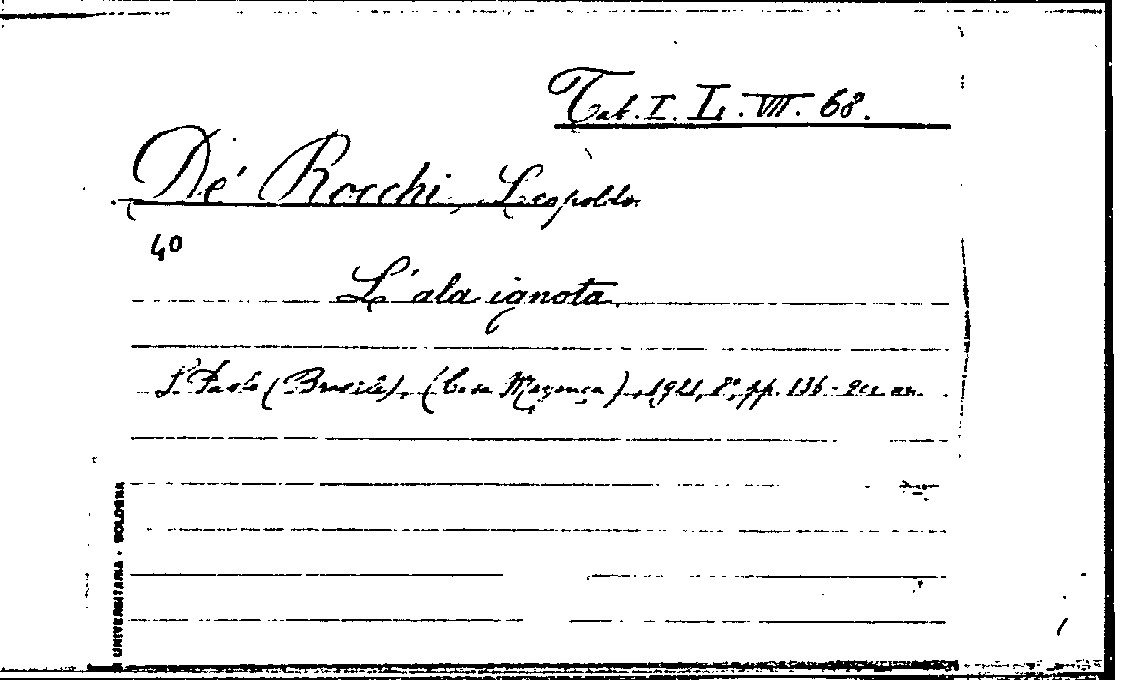 Tab. I. L. VII. 68.
De' Rocchi, Leopoldo.
40
L'ala ignota.
S. Paolo (Brasile), (Casa Magença), 1921, 8°, pp. 136 -
UNIVERSITARIA - BOLOGNA